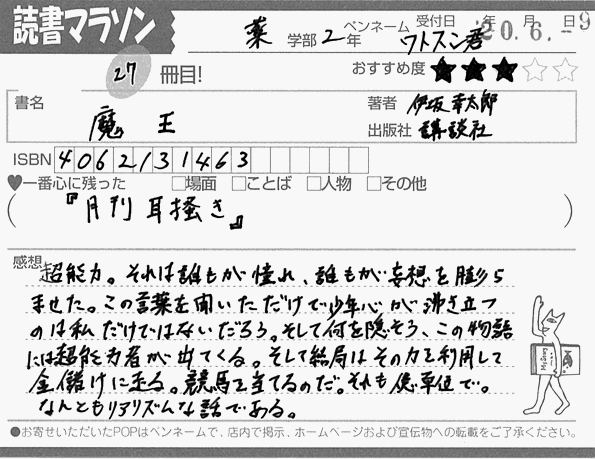 読書マラソン
薬 学部 2年
ペンネーム ワトスン君
受付日 年 月 日
20.6.-9
27 冊目!
おすすめ度 ★★★☆☆
書名
魔王
著者 伊坂幸太郎
出版社 講談社
ISBN 4062131463
♥一番心に残った □場面 □ことば □人物 □その他
(『月刊耳掻き』)
感想
超能力。それは誰もが憧れ、誰もが妄想を膨ら
ませた。この言葉を聞いただけで少年心が沸き立つ
のは私だけではないだろう。そして何を隠そう、この物語
には超能力者が出てくる。そして結局はその力を利用して
金儲けに走る。競馬で当てるのだ。それも億単位で。
なんともリアリズムな話である。
●お寄せいただいたPOPはペンネームで、店内で掲示、ホームページおよび宣伝物への転載をご了承ください。